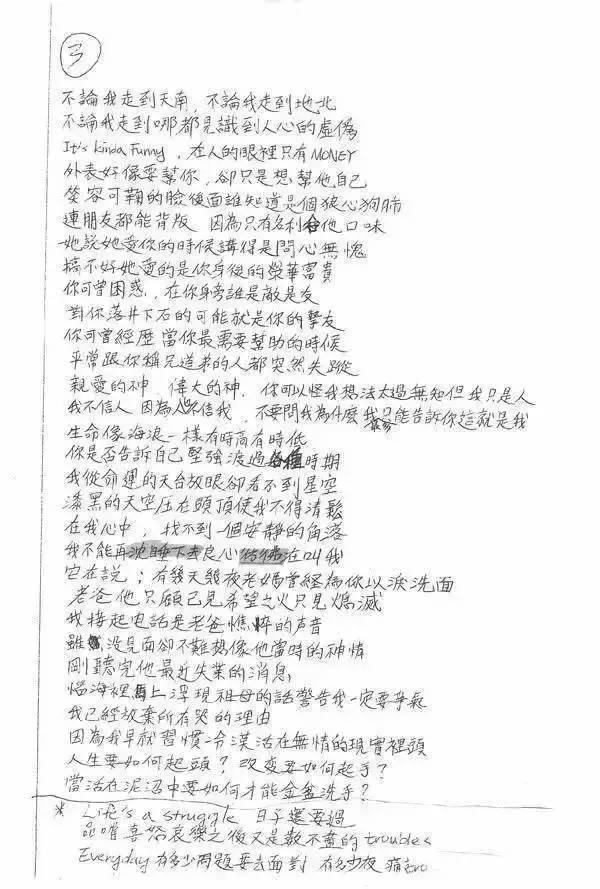 3
不論我走到天南, 不論我走到地北
不論我走到哪都見識到人心的虛偽
It's kinda Funny, 在人的眼裡只有 MONEY
外表好像要幫你, 卻只是想幫他自己
笑容可鞠的臉後面誰知道是個狼心狗肺
連朋友都能背叛 因為只有名利合他口味
她說她愛你的時候講得是問心無愧
搞不好她愛的是你身後的榮華富貴
你可曾困惑, 在你身旁誰是敵是友
對你落井下石的可能就是你的摯友
你可曾經歷當你最需要幫助的時候
平常跟你稱兄道弟的人都突然失蹤
親愛的神, 偉大的神, 你可以怪我想法太過無知但我只是人
我不信人 因為人不信我, 不要問我為什麼我只能告訴你這就是我
生命像海浪一樣有時高有時低
你是否告訴自己堅強渡過時期
我從命運的天台放眼卻看不到星空
漆黑的天空压在頭頂使我不得清鬆
在我心中, 找不到一個安靜的角落
我不能再沈睡下去良心彷彿在叫我
它在說; 有幾天幾夜老媽曾経為你以淚洗面
老爸他只顧己見希望之火只見熄滅
我接起电話是老爸憔悴的声音
雖沒見面卻不難想像他當時的神情
剛聽完他最近失業的消息,
惱海裡馬上浮現祖母的話警告我一定要爭氣
我已經放棄所有哭的理由
因為我早就習慣一令漠活在無情的現實裡頭
人生要如何起頭? 改変要如何起手?
當活在泥沼中要如何才能金盆洗手?
* Life's a struggle 日子還要過
品嚐喜怒哀樂之後又是數不盡的 troubles
Everyday 有多少問題要去面對 有多少夜 痛